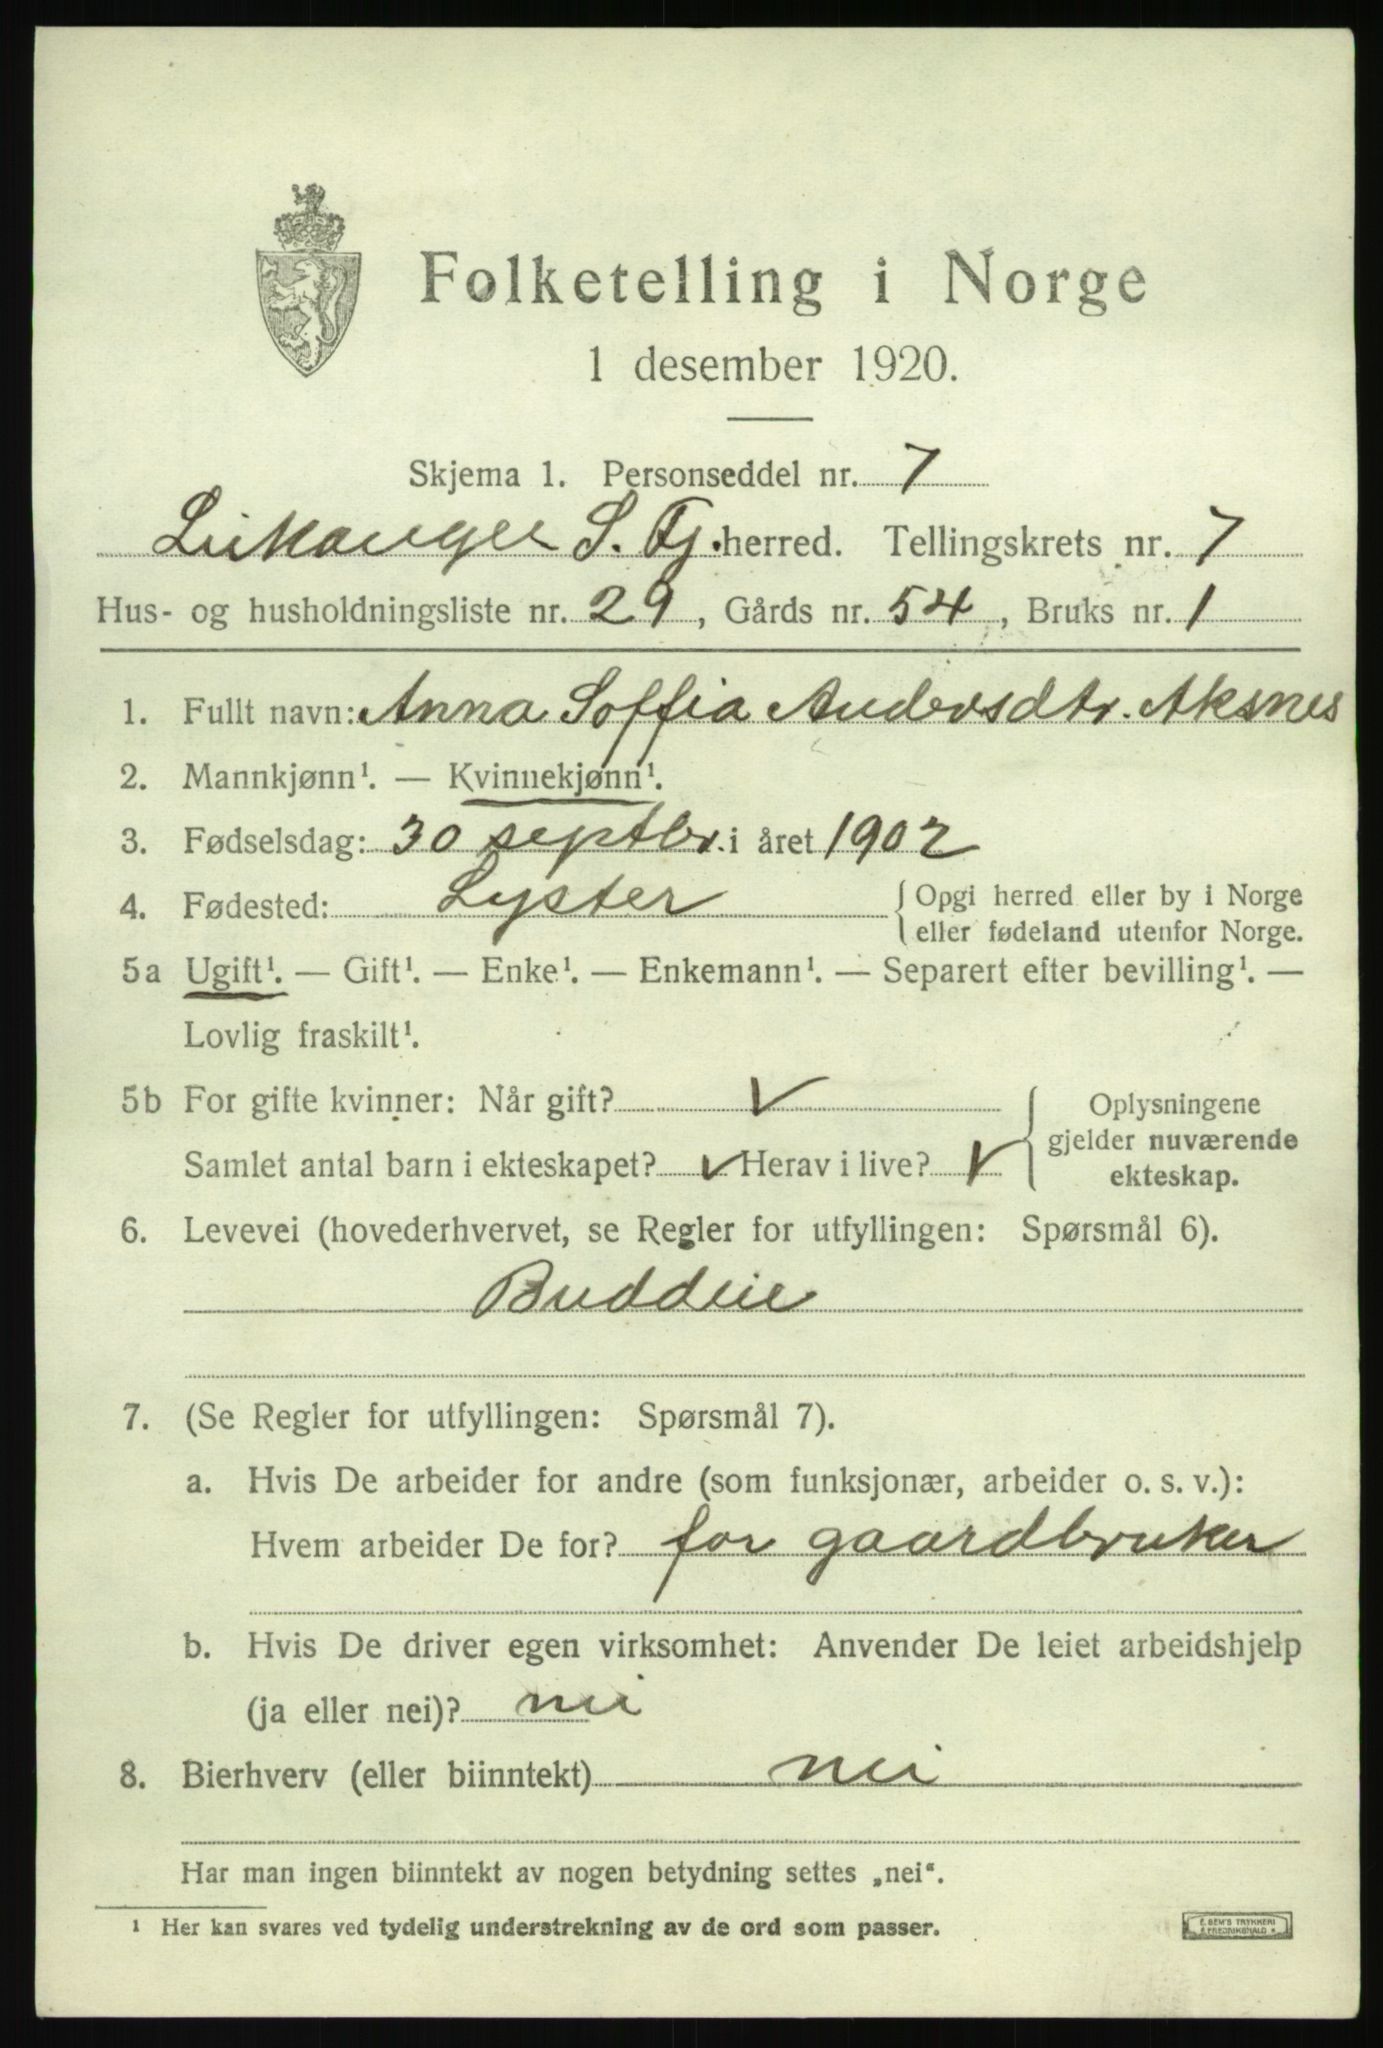 Folketelling i Norge
1 desember 1920.
Skjema 1. Personseddel nr. 7
Leikanger S. Fj. herred. Tellingskrets nr. 7
Hus- og husholdningsliste nr. 29, Gårds nr. 54, Bruks nr. 1
1. Fullt navn: Anna Soffia Andersdtr. Aksnes
2. Mannkjønn¹. — Kvinnekjønn¹.
3. Fødselsdag: 30 septbr. i året 1902
4. Fødested: Lyster { Opgi herred eller by i Norge
eller fødeland utenfor Norge.
5a Ugift¹. — Gift¹. — Enke¹. — Enkemann¹. — Separert efter bevilling¹. —
Lovlig fraskilt¹.
5b For gifte kvinner: Når gift? ✓
Samlet antal barn i ekteskapet? ✓ Herav i live? ✓
Oplysningene
gjelder nuværende
ekteskap.
6. Levevei (hovederhvervet, se Regler for utfyllingen: Spørsmål 6).
Buddeie
7. (Se Regler for utfyllingen: Spørsmål 7).
a. Hvis De arbeider for andre (som funksjonær, arbeider o. s. v.):
Hvem arbeider De for? for gaardbruker
b. Hvis De driver egen virksomhet: Anvender De leiet arbeidshjelp
(ja eller nei)? nei
8. Bierhverv (eller biinntekt) nei
Har man ingen biinntekt av nogen betydning settes „nei“.
¹ Her kan svares ved tydelig understrekning av de ord som passer.
E. SEM'S TRYKKERI
FREDRIKSHALD